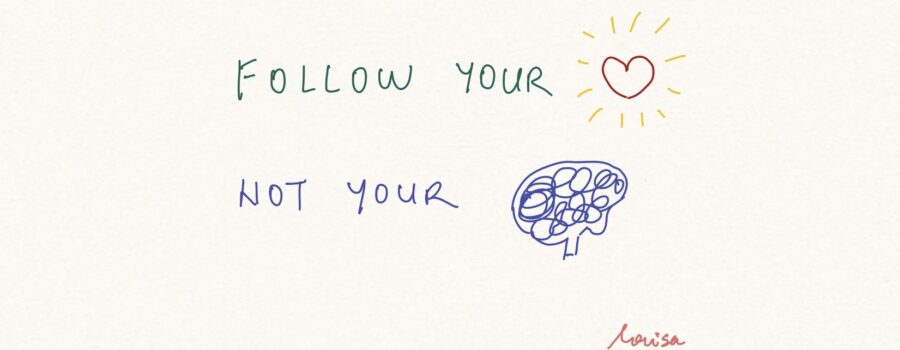 FOLLOW YOUR
NOT YOUR
Louisa